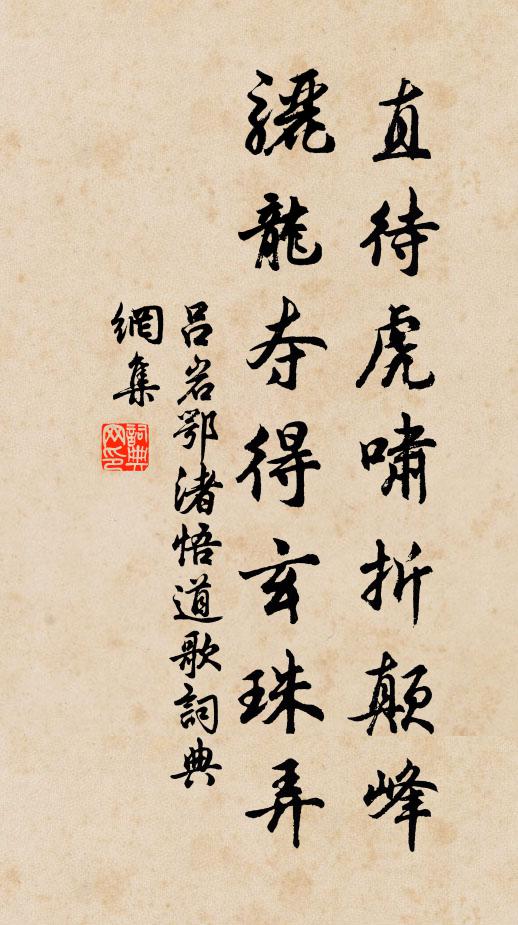 直待虎啸折颠峰
骊龙夺得玄珠弄
吕岩鄂渚悟道歌詞典
網集
詞典
网印